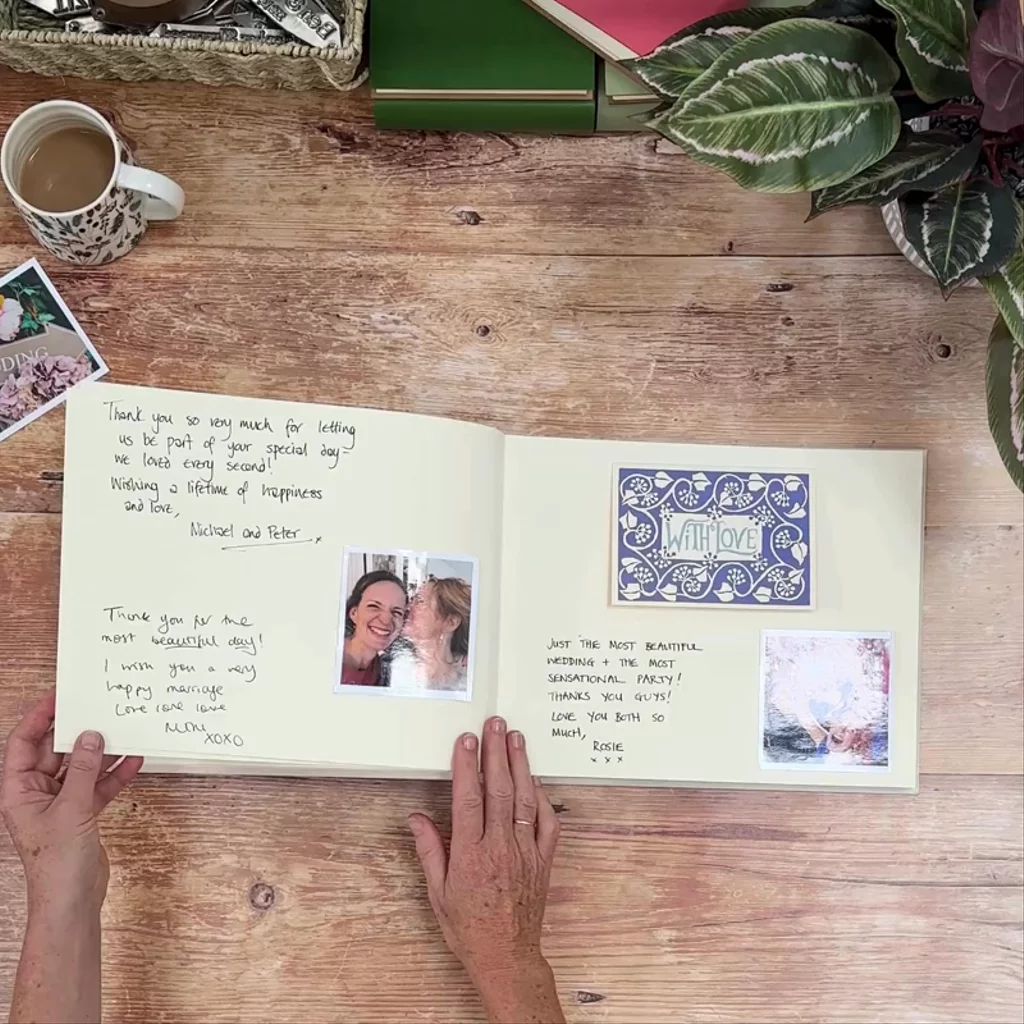 DING
Thank you so very much for letting
us be part of your special day –
we loved every second!
Wishing a lifetime of happiness
and love,
Michael and Peter x
Thank you for the
most beautiful day!
I wish you a very
happy marriage
Love love love
XOXO
WITH LOVE
JUST THE MOST BEAUTIFUL
WEDDING + THE MOST
SENSATIONAL PARTY!
THANKS YOU GUYS!
LOVE YOU BOTH SO
MUCH,
ROSIE
x x x